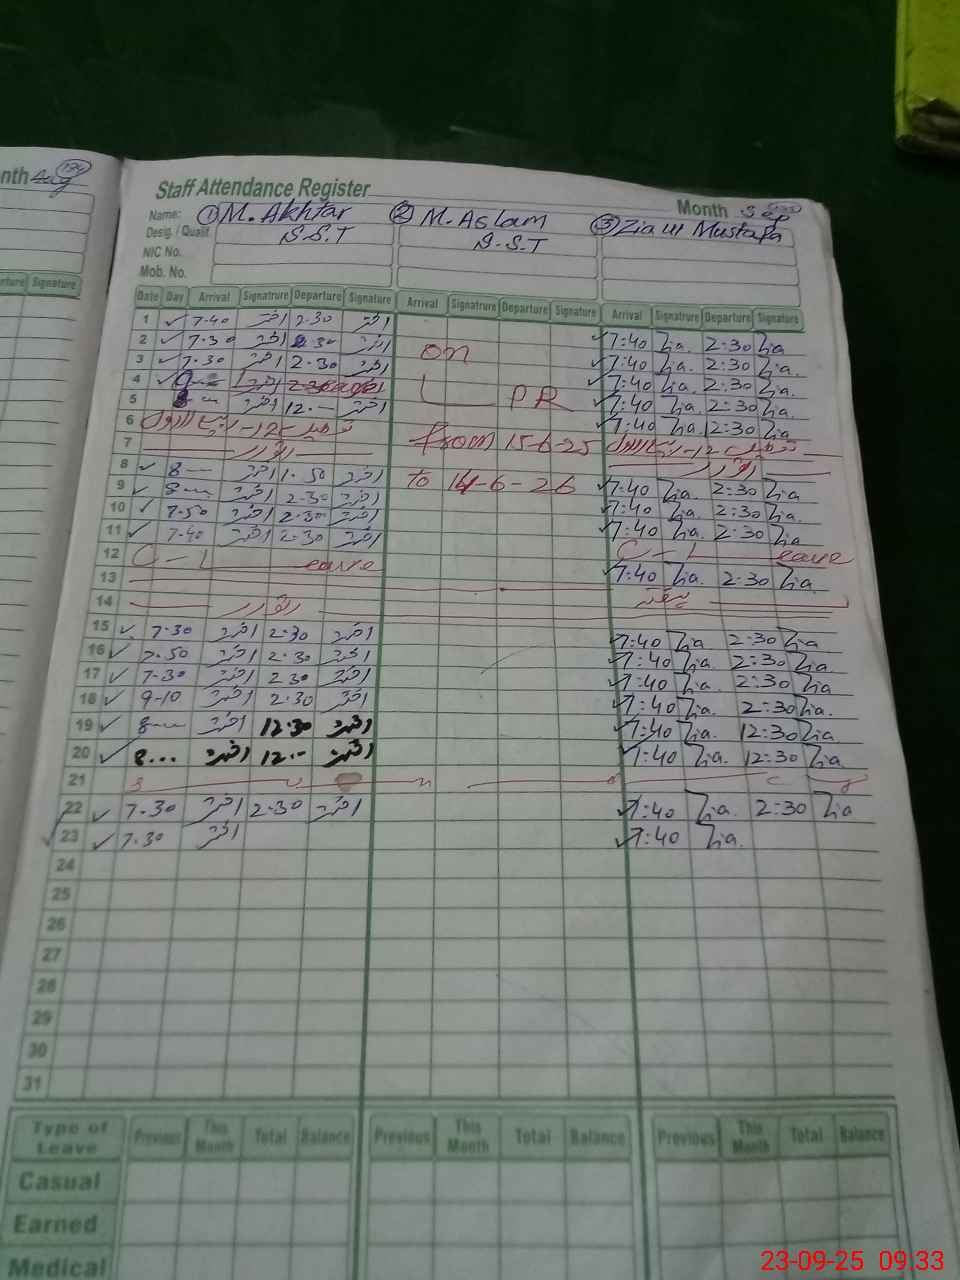 Staff Attendance Register
Month Sep
Name: ① M. Akhtar ② M. Aslam ③ Zia ul Mustafa
Desig. / Qualif. S.S.T S.S.T
NIC No.
Mob. No.
Date Day Arrival Signatrure Departure Signature Arrival Signatrure Departure Signature Arrival Signatrure Departure Signature
1 ✓ 7-40 اختر 2-30 اختر
2 ✓ 7-30 اختر 2-30 اختر ✓ 7:40 Zia. 2:30 Zia
3 ✓ 7-30 اختر 2-30 اختر on ✓ 7:40 Zia. 2:30 Zia.
4 ✓ اختر ✓ 7:40 Zia. 2:30 Zia.
5 8 اختر 12.— اختر L PR ✓ 7:40 Zia. 2:30 Zia.
✓ 7:40 Zia. 12:30 Zia
6 تعطیل 12- ربیع الاول from 15-6-25 تعطیل 12- ربیع الاول
7 اتوار اتوار
8 ✓ 8 — اختر 1.50 اختر to 14-6-26 ✓ 7:40 Zia. 2:30 Zia
9 ✓ 8 — اختر 2-30 اختر ✓ 7:40 Zia. 2:30 Zia.
10 ✓ 7-50 اختر 2-30 اختر ✓ 7:40 Zia. 2:30 Zia
11 ✓ 7-40 اختر 2-30 اختر
12 C - L eave C - L eave
13 ✓ 7:40 Zia. 2:30 Zia.
14 اتوار ہفتہ
15 ✓ 7-30 اختر 2-30 اختر ✓ 7:40 Zia 2:30 Zia
16 ✓ 7-50 اختر 2-30 اختر ✓ 7:40 Zia. 2:30 Zia.
17 ✓ 7-30 اختر 2 30 اختر ✓ 7:40 Zia. 2:30 Zia
18 ✓ 9-10 اختر 2-30 اختر ✓ 7:40 Zia. 2:30 Zia.
19 ✓ 8 — اختر 12-30 اختر ✓ 7:40 Zia. 12:30 Zia
20 ✓ 8 ... اختر 12.— اختر ✓ 7:40 Zia. 12:30 Zia
21 S u n d a y
22 ✓ 7-30 اختر 2-30 اختر ✓ 7:40 Zia. 2:30 Zia
23 ✓ 7-30 اختر ✓ 7:40 Zia.
24
25
26
27
28
29
30
31
Type of Leave Previous This Month Total Balance Previous This Month Total Balance Previous This Month Total Balance
Casual
Earned
Medical
nth Aug 134
rture Signature
23-09-25 09:33